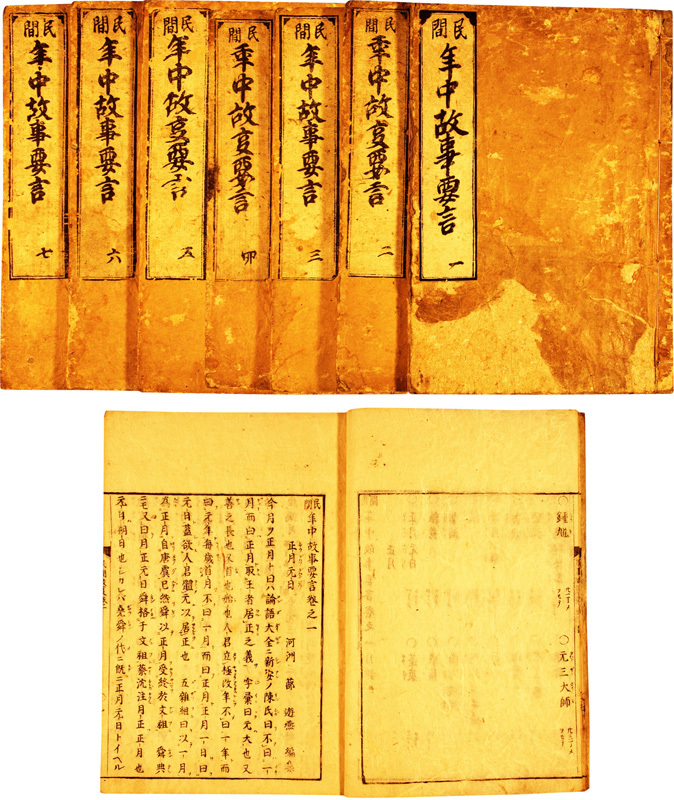 民間
年中故事要言
一
民間
年中故叓要言
二
民間
年中故事要言
三
民間
年中故叓要言
四
民間
年中故叓要言
五
民間
年中故事要言
六
民間
年中故事要言
七
〇鍾馗
〇元三大師
民間年中故事要言卷之一
正月元日 河洲 蔀 遊燕 編集
今月ヲ正月ト曰ハ論語大全ニ新安ノ陳氏曰不曰一
月而曰正月取王者居正之義 字彙曰元大也又
善之長也又首也始也人君立極改年不曰一年而
曰元年每歲首月不曰一月而曰正月正月一日曰
元日蓋欲人君體元以居正也 五雜組曰以一月
為正月自唐虞已然舜以正月受終於文祖 舜典
ニモ又曰月正元日舜格于文祖蔡沈注月正正月也
元日朔日也シカレバ堯舜ノ代ニ既ニ正月元日トイヘル